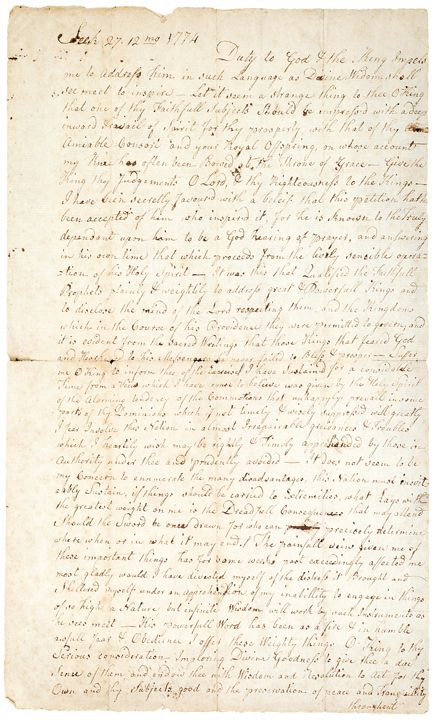 27. 12 mo 1774
Duty to God & the King Impels
me to address him in such Language as Divine Wisdom shall
see meet to inspire — Let it seem a strange thing to thee O King
that one of thy Faithfull Subjects Should be impress'd with a deep
inward Travail of Spirit for thy prosperity, with that of thy
Amiable Consort and your Royal Offspring, on whose accounts
my Knee has often been Bowed at the Throne of Grace — Give the
King thy Judgements O Lord, & thy Righteousness to the Kings —
I have been secretly favour'd with a beleif that this petition hath
been accepted of him who inspired it, for he is known to the truly
dependant upon him to be a God hearing of prayer, and answering
in his own time that which proceeds from the lively sensible opera-
-tions of his Holy Spirit — It was this that Qualified the Faithfull
Prophets plainly & weightily to address great & Powerfull Kings and
to disclose the mind of the Lord respecting them, and the Kingdoms
which in the Course of his Providence they were permitted to govern, and
it is evident from the Sacred Writings that those Kings that feared God
and Hearkned to his Messengers never failed to Bless & prosper — Suffer
me O King to inform thee of the interest I have Sustained for a considerable
Time from a View which I have cause to believe was given by the Holy Spirit
of the Alarming tendency of the Commotions that unhappyly prevail in some
parts of thy Dominions which if not timely & wisely suppressed will greatly
I fear Involve this Nation in almost Irreparable grieveances & Troubles
which I heartily wish may be rightly & Timely apprehended by those in
Authority under thee and prudently avoided — It does not seem to be
my Concern to ennumerate the many disadvantages, this Nation must inevit-
-ably Sustain, if things should be carried to Extremeties, what Lays with
the greatest weight on me is the Dreadfull Consequences that may attend
Should the Sword be once drawn for who can precisely determine
where when or in what it may end! The painfull view given me of
these important things has for some weeks past exceedingly affected me
most gladly would I have divested myself of the distress it Brought and
Sheltered myself under an apprehension of my inabillity to engage in things
of so high a Nature, but infinite Wisdom will work by weak Instruments as
he sees meet — His Powerfull Word has been as a fire & in humble
awfull Fear & Obedience I offer these Weighty things O King to thy
Serious consideration Imploring Divine Goodness to give thee a due
Sense of them and endow thee with Wisdom and Resolution to Act for thy
Own and thy Subjects good and the preservation of peace and tranquility
throughout